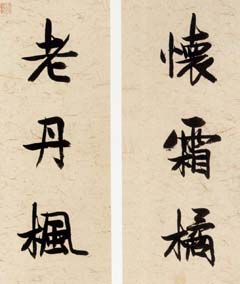 懷霜橘
老丹楓